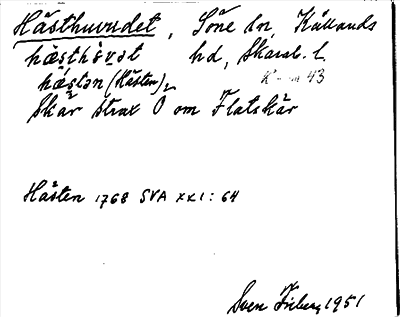 Hästhuvudet, Söne sn, Kållands
hæsthʉvət hd, Skarab. l.
hæstən (Hästen)2 43
Skär strax O om Flatskär
Hästen 1768 SVA XXI: 64
Sven Friberg 1951